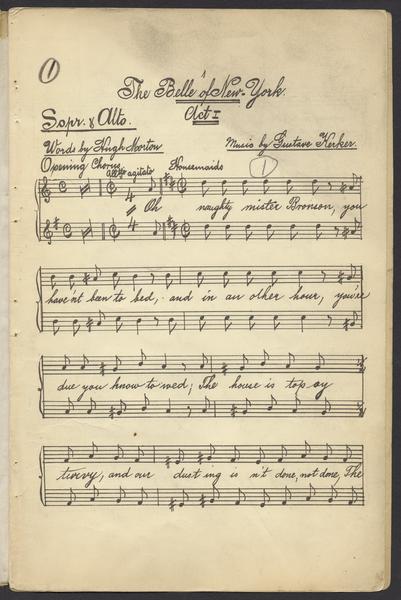 1
"The Belle of New-York.
Act I
Sopr. & Alto.
Words by Hugh Morton
Music by Gustave Kerker.
Opening Chorus.
allto agitato
Housemaids
1
4
4
Oh naughty mister Bronson, you
have'nt been to bed, and in an other hour, you're
due you know to wed; The house is topsy
turvy, and our dusting is n't done, not done, The